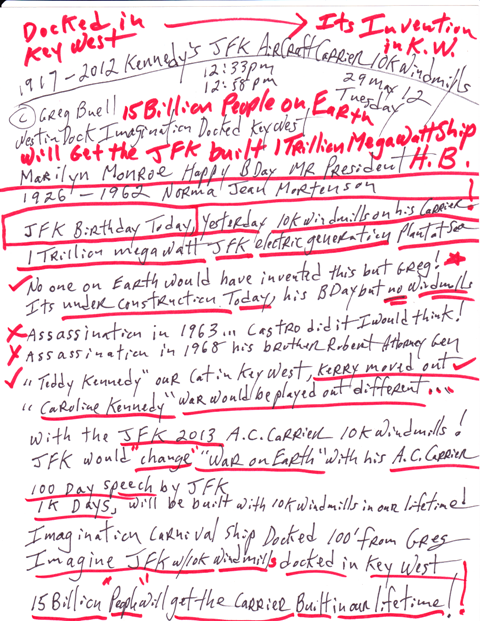 Docked in Key West → Its Invention in K.W.
1917-2012 Kennedy's JFK AirCraft Carrier 10K Windmills
12:33pm
12:58pm
29 may 12
Tuesday
© Greg Buell 15 Billion People on Earth
Westin Dock Imagination Docked Key West
Will Get the JFK built 1 Trillion MegaWatt Ship
Marilyn Monroe Happy BDay Mr President H.B.
1926-1962 Norma Jean Mortenson !
JFK Birthday Today, yesterday 10K windmills on his Carrier.
1 Trillion megawatt JFK electric generation Plant at Sea
✓ No one on Earth would have invented this but Greg! ★
Its under construction Today, his BDay but no windmills
x Assassination in 1963... Castro did it I would think!
x Assassination in 1968 his brother Robert Attorney Gen
✓ "Teddy Kennedy" our Cat in Key West, Kerry moved out ✓
"Caroline Kennedy" war would be played out different....
with the JFK 2013 A.C. Carrier 10K windmills!
JFK would "change" "War on Earth" with his A.C. Carrier
100 Day speech by JFK
1K Days, will be built with 10K windmills in our lifetime!
Imagination Carnival Ship Docked 100' from Greg
Imagine JFK w/10K windmills docked in Key West
15 Billion "People" will get the Carrier Built in our lifetime!!